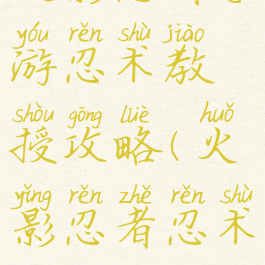 yóu rěn shù jiào
游忍术教
shòu gōng lüè huǒ
授攻略(火
yǐng rěn zhě rěn shù
影忍者忍术